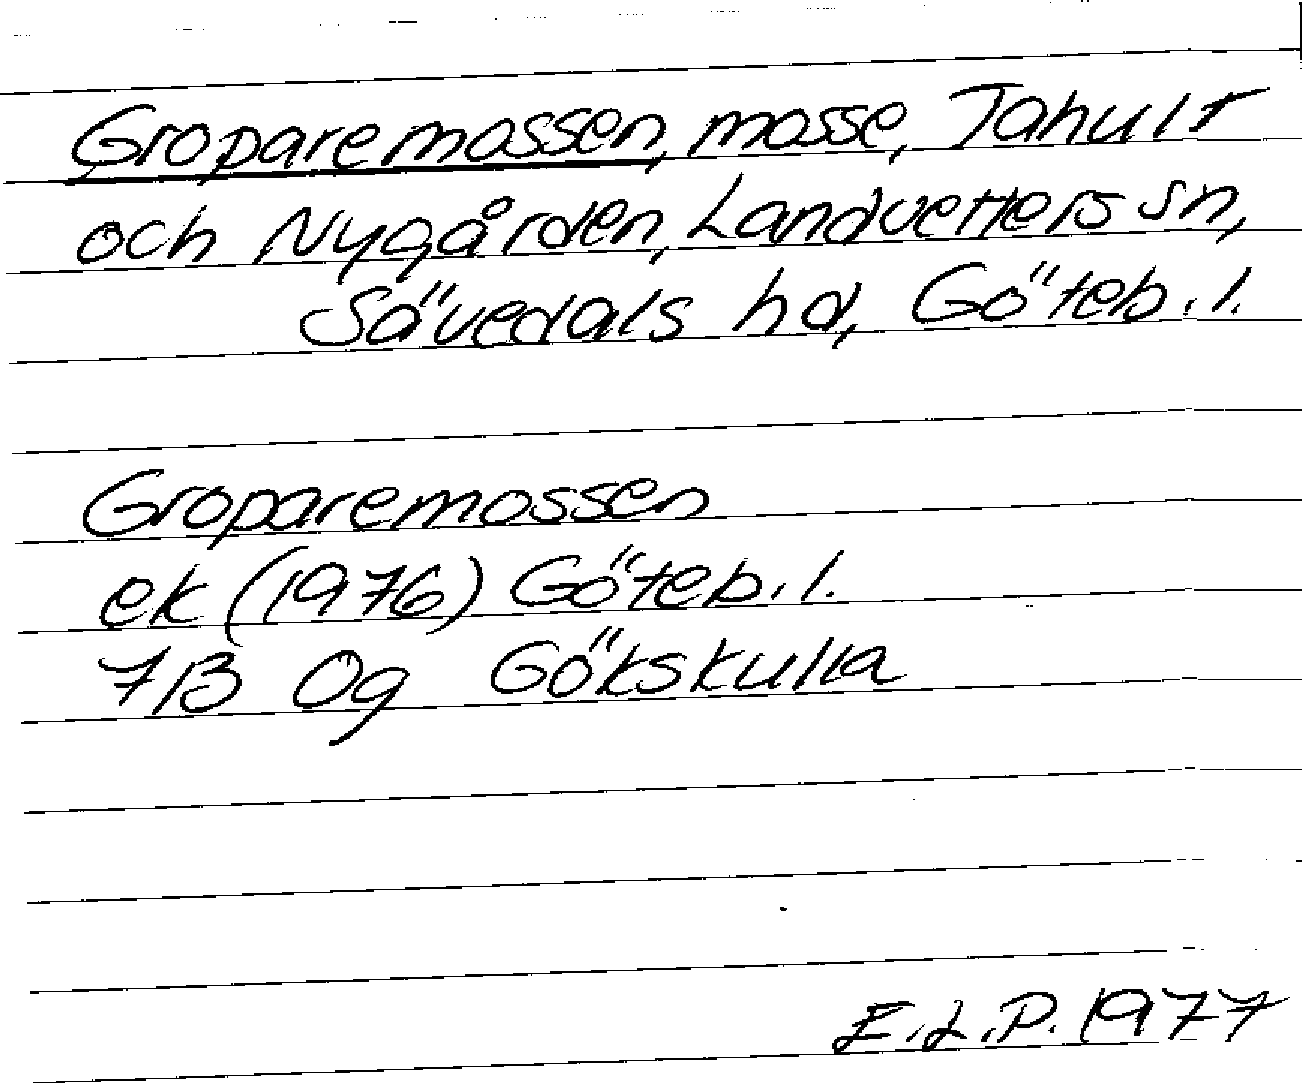 Groparemossen, mosse, Tahult
och Nygården, Landvetters sn,
Sävedals hd, Göteb. l.
Groparemossen
ek (1976) Göteb. l.
7B 0g Gökskulla
E.L.P. 1977